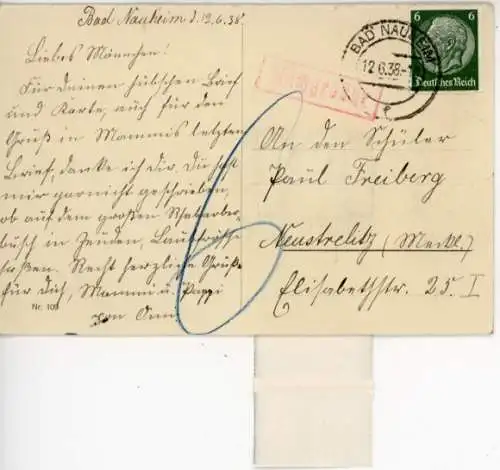 Bad Nauheim d. 12.6.38.
Liebes Männchen!
Für Deinen hübschen Brief
und Karte, auch für den
Gruß in Mammis letzten
Brief, danke ich dir. Du hast
mir garnicht geschrieben,
ob auf dem großen
busch in
Recht herzliche Grüße
für Dich, Mammi u. Pappi
von Omi
Nr. 109
BAD NAUHEIM
12.6.38
6 6
Deutsches Reich
An den Schüler
Paul Freiberg
Neustrelitz (Meckl.)
Elisabethstr. 25 I